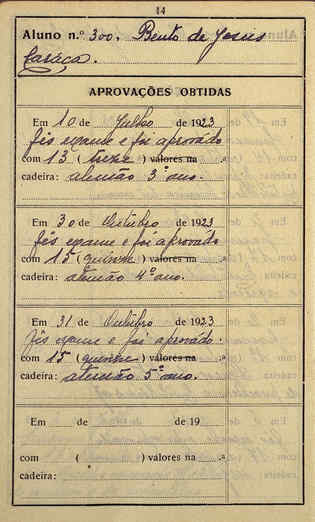 14
Aluno n.º 300, Bento de Jesus
Caraça.
APROVAÇÕES OBTIDAS
Em 10 de Julho de 1923
fês exame e foi aprovado
com 13 (treze) valores na
cadeira: alemão 3º ano.
Em 30 de Outubro de 1923
fês exame e foi aprovado
com 15 (quinze) valores na
cadeira: alemão 4º ano.
Em 31 de Outubro de 1923
fês exame e foi aprovado.
com 15 (quinze) valores na
cadeira: alemão 5º ano.
Em de de 19
com ( ) valores na
cadeira: